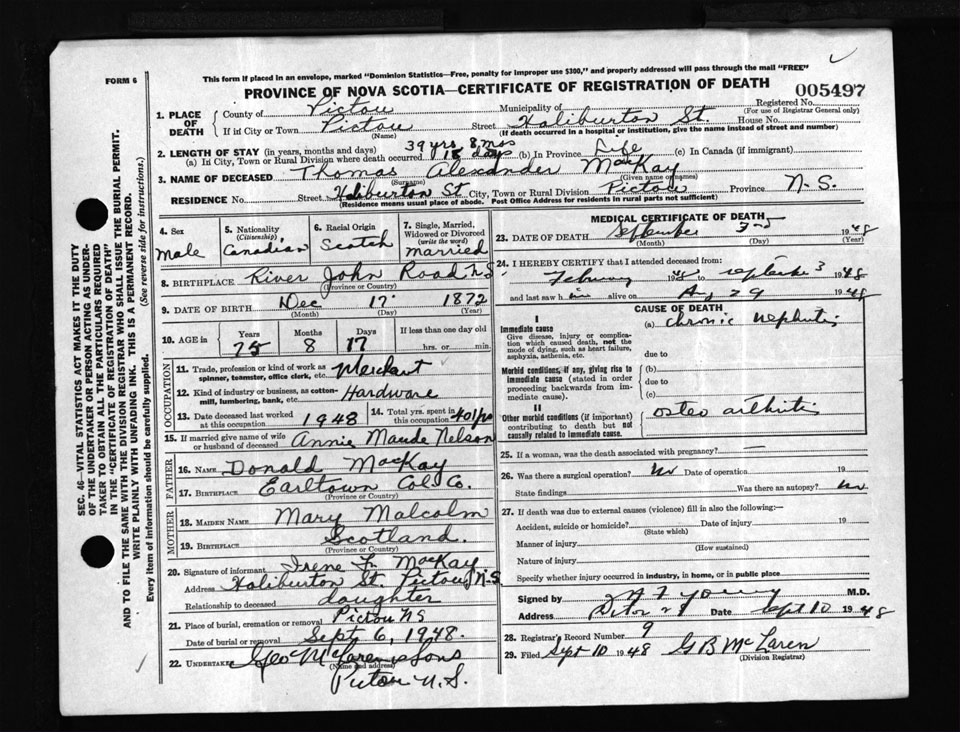 FORM 6
This form if placed in an envelope, marked "Dominion Statistics—Free, penalty for improper use $300," and properly addressed will pass through the mail "FREE"
PROVINCE OF NOVA SCOTIA—CERTIFICATE OF REGISTRATION OF DEATH
005497
Registered No.
(For use of Registrar General only)
1. PLACE OF DEATH
County of Pictou
Municipality of
If in City or Town Pictou
(Name)
Street Haliburton St. House No.
(If death occurred in a hospital or institution, give the name instead of street and number)
2. LENGTH OF STAY (in years, months and days)
(a) In City, Town or Rural Division where death occurred 39 yrs 8 mos 18 days (b) In Province Life (c) In Canada (if immigrant)
3. NAME OF DECEASED Thomas Alexander MacKay
(Surname) (Given name or names)
RESIDENCE No. Street Haliburton St City, Town or Rural Division Pictou Province N.S.
(Residence means usual place of abode. Post Office Address for residents in rural parts not sufficient)
4. Sex
Male
5. Nationality
(Citizenship)
Canadian
6. Racial Origin
Scotch
7. Single, Married, Widowed or Divorced
(write the word)
Married
8. BIRTHPLACE River John Road N.S
(Province or Country)
9. DATE OF BIRTH Dec 17 1872
(Month) (Day) (Year)
10. AGE in
Years Months Days
75 8 17
If less than one day old
hrs. or min.
OCCUPATION
11. Trade, profession or kind of work as spinner, teamster, office clerk, etc. Merchant
12. Kind of industry or business, as cotton-mill, lumbering, bank, etc. Hardware
13. Date deceased last worked at this occupation 1948
14. Total yrs. spent in this occupation 40 yrs
15. If married give name of wife or husband of deceased Annie Maude Nelson
FATHER
16. NAME Donald MacKay
17. BIRTHPLACE Earltown Col Co.
(Province or Country)
MOTHER
18. MAIDEN NAME Mary Malcolm
19. BIRTHPLACE Scotland.
(Province or Country)
20. Signature of informant Irene F. MacKay
Address Haliburton St. Pictou, N.S
Relationship to deceased daughter
21. Place of burial, cremation or removal Pictou NS
Date of burial or removal Sept 6, 1948.
22. UNDERTAKER Geo McLaren & Sons
(Name and address)
Pictou N.S.
MEDICAL CERTIFICATE OF DEATH
23. DATE OF DEATH September 3rd 1948
(Month) (Day) (Year)
24. I HEREBY CERTIFY that I attended deceased from:
February 1948 to September 3 1948
and last saw him alive on Aug 29 1948
CAUSE OF DEATH
I
Immediate cause
Give disease, injury or complication which caused death, not the mode of dying, such as heart failure, asphyxia, asthenia, etc.
(a) chronic nephritis
due to
Morbid conditions, if any, giving rise to immediate cause (stated in order proceeding backwards from immediate cause)
(b)
due to
(c)
II
Other morbid conditions (if important) contributing to death but not causally related to immediate cause.
osteo arthritis
25. If a woman, was the death associated with pregnancy?
26. Was there a surgical operation? no Date of operation 19
State findings Was there an autopsy? no
27. If death was due to external causes (violence) fill in also the following:—
Accident, suicide or homicide? Date of injury 19
(State which)
Manner of injury
(How sustained)
Nature of injury
Specify whether injury occurred in industry, in home, or in public place
Signed by Young M.D.
Address Pictou NS Date Sept 10 1948
28. Registrar's Record Number 9
29. Filed Sept 10 1948 G B McLaren
(Division Registrar)
SEC. 46—VITAL STATISTICS ACT MAKES IT THE DUTY
OF THE UNDERTAKER OR PERSON ACTING AS UNDER-
TAKER TO OBTAIN ALL THE PARTICULARS REQUIRED
IN THE "CERTIFICATE OF REGISTRATION OF DEATH"
AND TO FILE THE SAME WITH THE DIVISION REGISTRAR WHO SHALL ISSUE THE BURIAL PERMIT.
WRITE PLAINLY WITH UNFADING INK. THIS IS A PERMANENT RECORD.
Every item of information should be carefully supplied. (See reverse side for instructions.)